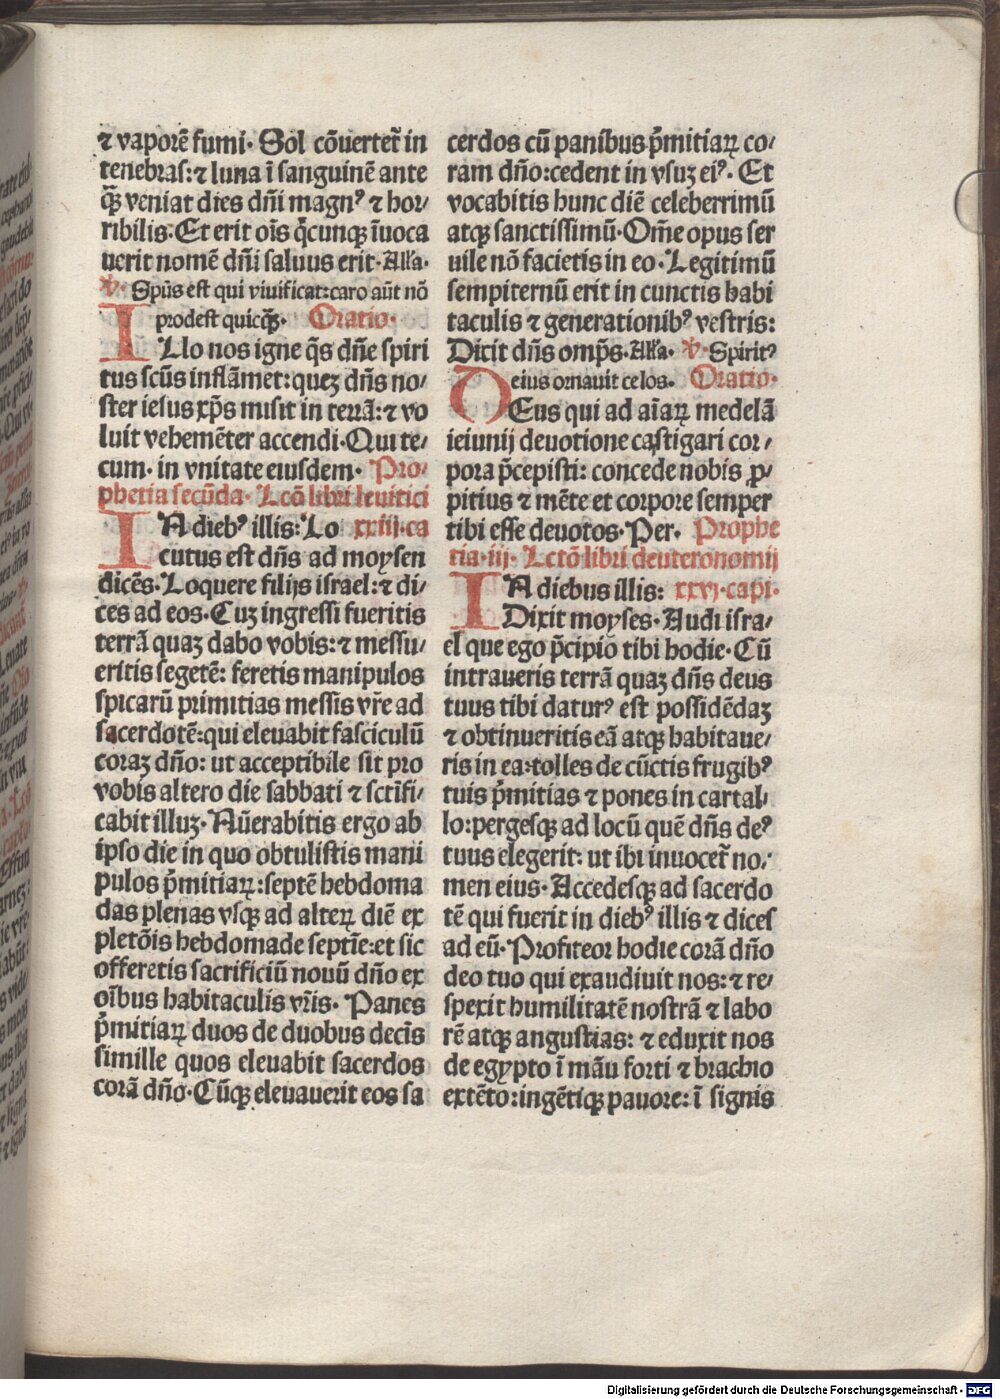 ⁊ vaporē fumi· Sol cōuertet᷑ in
tenebras:⁊ luna ī sanguinē ante
q̄ꝫ veniat dies dn̄i magnꝰ ⁊ hor⸗
ribilis·Et erit oīs q̄cunqꝫ īuoca
uerit nomē dn̄i saluus erit·All'a·
℣· Sp̄us est qui viuificat:caro aūt nō
prodest quicq̄ꝫ· Oratio·
ILlo nos igne q̄s dn̄e spiri
tus scūs inflāmet:quez dn̄s no⸗
ster iesus xp̄s misit in terrā:⁊ vo
luit vehemēter accendi·Qui te⸗
cum· in vnitate eiusdem· Pro⸗
phetia secūda· Lcō libri leuitici
IN diebꝰ illis:Lo xxiij·ca
cutus est dn̄s ad moysen
dicēs·Loquere filijs israel:⁊ di⸗
ces ad eos·Cuz ingressi fueritis
terrā quaz dabo vobis:⁊ messu⸗
eritis segetē: feretis manipulos
spicarū primitias messis vr̄e ad
sacerdotē:qui eleuabit fasciculū
coraz dn̄o: ut acceptibile sit pro
vobis altero die sabbati ⁊ sctīfi⸗
cabit illuz·Nūerabitis ergo ab
ipso die in quo obtulistis mani
pulos p̄mitiaꝝ:septē hebdoma
das plenas vsqꝫ ad alteꝝ diē ex
pletōis hebdomade septīe:et sic
offeretis sacrificiū nouū dn̄o ex
oībus habitaculis vr̄is· Panes
p̄mitiaꝝ duos de duobus decīs
simille quos eleuabit sacerdos
corā dn̄o·Cūqꝫ eleuauerit eos sa
cerdos cū panibus p̄mitiaꝝ co⸗
ram dn̄o:cedent in vsuz eiꝰ· Et
vocabitis hunc diē celeberrimū
atqꝫ sanctissimū·Om̄e opus ser
uile nō facietis in eo·Legitimū
sempiternū erit in cunctis habi
taculis ⁊ generationibꝰ vestris:
Dixit dn̄s omp̄s·All'a· ℣· Spiritꝰ
eius ornauit celos· Oratio·
DEus qui ad aīaꝝ medelā
ieiunij deuotione castigari cor⸗
pora p̄cepisti: concede nobis ꝓ⸗
pitius ⁊ mēte et corpore semper
tibi esse deuotos·Per· Prophe
tia·iij· Lctō libri deuteronomij
IN diebus illis: xxvj·capi·
Dixit moyses·Audi isra⸗
el que ego p̄cipio tibi hodie·Cū
intraueris terrā quaz dn̄s deus
tuus tibi daturꝰ est possidēdaz
⁊ obtinueritis eā atqꝫ habitaue⸗
ris in ea:tolles de cūctis frugibꝰ
tuis p̄mitias ⁊ pones in cartal⸗
lo:pergesqꝫ ad locū quē dn̄s deꝰ
tuus elegerit: ut ibi inuocet᷑ no⸗
men eius·Accedesqꝫ ad sacerdo
tē qui fuerit in diebꝰ illis ⁊ dices
ad eū·Profiteor hodie corā dn̄o
deo tuo qui exaudiuit nos:⁊ re⸗
spexit humilitatē nostrā ⁊ labo
rē atqꝫ angustias: ⁊ eduxit nos
de egypto ī māu forti ⁊ brachio
extēto:ingētiqꝫ pauore: ī signis
Digitalisierung gefördert durch die Deutsche Forschungsgemeinschaft - DFG